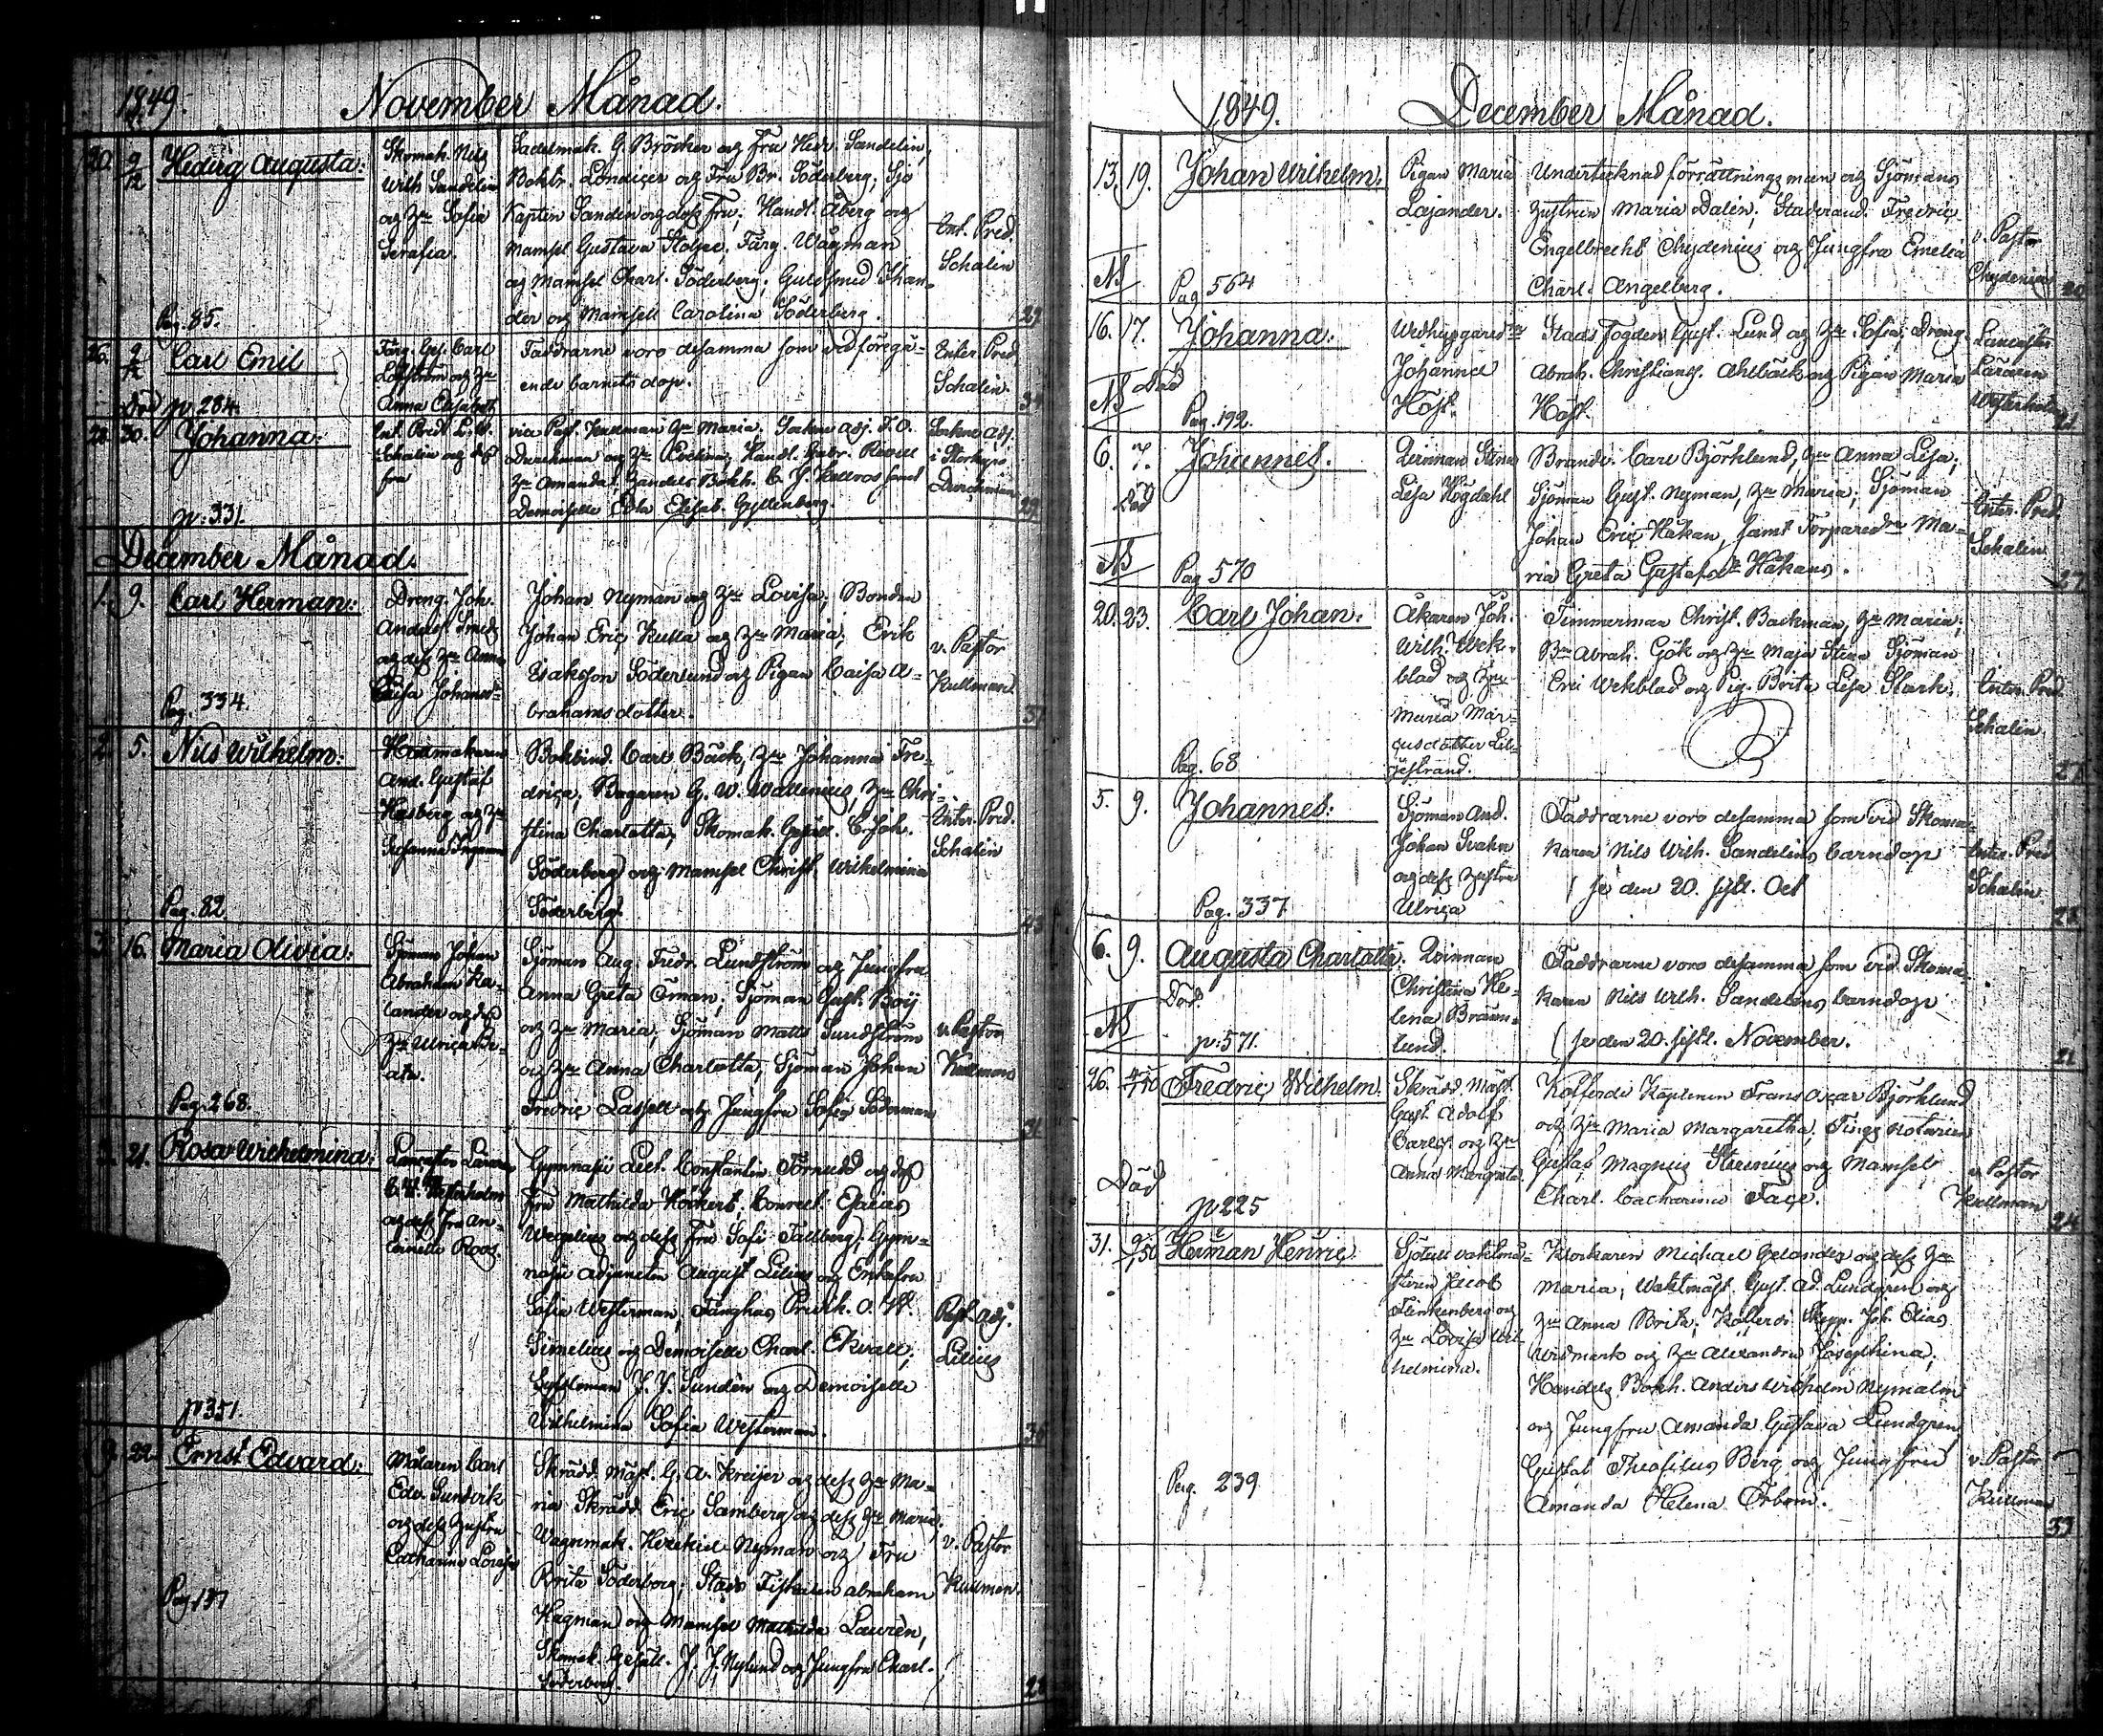 1849. November Månad.
20. 9/12 Hedvig Augusta:
Pag. 85.
Skomak. Nils
Wilh Sandelin
og Hu Sofia
Serafia.
Sadelmak. G. Bröcker og fru Hedv. Sandelin,
Boktr. Londicer og Fru Br. Söderberg; Sjö
Kapten Sandén og dess fru; Handl. Åberg og
Mamsel Gustava Stolpe; Färg. Wågman
og Mamsel Charl. Söderberg; Guldsmed
der og Mamsell Carolina Söderberg.
Ext. Pred.
Schalin
26. 9/12 Carl Emil
Död p. 284.
Färg. Ges. Carl
Löfström og Hu
Anna Elisabet
Faddrarne voro desamma som vid föregå-
ende barnets dop.
Exter. Pred
Schalin.
28. 30. Johanna:
p. 331.
Ext. Pred.
Schalin og dess
fru
vice Past. Kullman Hu Maria. Sockne adj. F. O.
Durchman og Hu Handl. Gabr.
Hu Amanda, Handels Bokh. C. J. samt
Demoiselle Edla Elisab. Gyllenberg.
Sockne adj.
i Storkyro
Durchman
29
December Månad.
1. 9. Carl Herman:
Pag. 334.
Dreng. Joh.
Anders. Smeds
og dess Hu Anna
Caisa Johansdr
Johan Nyman og Hu Lovisa; Bonden
Johan Eric Kulla og Hu Maria; Erik
Isaksson Söderlund og Pigan Caisa A-
brahamsdotter.
v. Pastor
Kullman
37
2. 5. Nils Wilhelm:
Pag. 82.
Hattmakaren
And. Gustaf
Hasberg og Hu
Susanna
Bokbind. Carl Bäck, Hu Johanna Fre-
drica; Bagaren G. W. Wallenius, Hu Chri-
stina Charlotta; Skomak. Gesäll. C. Joh.
Söderberg og Mamsel Christ. Wilhelmina
Söderberg.
Exter. Pred.
Schalin
43
3. 16. Maria Olivia:
Pag. 268.
Sjöman Johan
Abraham Ka-
lander og dess
Hu Ulrica Be-
ata.
Sjöman Aug. Fredr. Lundström og Jungfru
Anna Greta Öman; Sjöman Gust. Boij
og Hu Maria; Sjöman Matts Sundström
og Hu Anna Charlotta; Sjöman Johan
Fredric Lassell og Jungfru Sofia Söderman
v. Pastor
Kullman
31
21. Rosa Wilhelmina:
p. 351.
Lancaster Läraren
C. W. Westerholm
og dess fru An-
Cornelia Roos.
Gymnasii Lect. Constantin Törnudd og dess
fru Mathilda Höckert; Conrect. Esaias
Wegelius og dess Fru Sofi Tallberg; Gym-
nasii Adjuncten August Lilius og Enkefru
Sofia Westerman; Fånghus Predik. O. W.
Simelius og Demoiselle Charl. Ekvall;
Sysslöman J. Y. Sundén og Demoiselle
Wilhelmina Sofia Westerman.
Past. adj.
Lilius
36
9. 22. Ernst Edvard:
Pag. 137
Målaren Carl
Edv.
og dess Hustru
Catharina Lovisa
Skrädd. Mäst. G. A. Kreijer og dess Hu Ma-
ria Skrädd. Eric Samberg og dess Hu Maria;
Wagnmak. Hezekiel Nyman og Fru
Brita Söderborg; Stads Fiskalen Abraham
Hagman og Mamsel Mathilda Laurén,
Skomak. Gesäll. J. J. Nylund og Jungfru Charl.
Söderborg.
v. Pastor
Kullman.
28
1849. December Månad.
13. 19. Johan Wilhelm.
NB
Pag 564
Pigan Maria
Lajander.
Undertecknad förrättningsman og Sjömans
Hustrun Maria Dalin; Stadsraud. Fredric
Engelbrecht Chydenius og Jungfru Emelia
Charl. Angelberg.
v. Pastor
Chydenius
20
16. 17. Johanna:
NB Död
Pag. 192.
Johanna
Häst.
Stads Fogden Gust. Lund og Hu Sofia; Dreng.
Abrah. Christians. Ahlbäck og Pigan Maria
Häst.
Lancaster
Läraren
Westerholm
21
6. 7. Johannes.
Död
NB
Pag 570
Qvinnan Stina
Lisa Högdahl
Brandv. Carl Björklund, Hu Anna Lisa;
Sjöman Gust. Nyman, Hu Maria; Sjöman
Johan Eric Håkan, samt Torparedr Ma-
ria Greta Gustafsdr Håkans.
Exter. Pred.
Schalin
27
20. 23. Carl Johan:
Pag. 68
Åkaren Joh.
Wilh. Wek-
blad og Hu
Maria Mar-
cusdotter Lil-
jestrand.
Timmerman Christ. Backman, Hu Maria;
Bn Abrah. Gök og Hu Maja Stina Sjöman
Eric Wekblad og Pig. Brita Lisa Stark.
Exter. Pred.
Schalin
27
5. 9. Johannes:
Pag. 337
Sjöman And.
Johan Svahn
og dess Hustru
Ulrica
Faddrarne voro desamma som vid Skoma-
karen Nils Wilh. Sandelins barndop
(se den 20. sistl. Oct
Exter. Pred
Schalin
6. 9. Augusta Charlotta:
Död.
NB
p. 571.
Qvinnan
Christina He-
lena Bräun-
lund.
Faddrarne voro desamma som vid Skoma-
karen Nils Wilh. Sandelins barndop
(se den 20. sistl. November.
26. Fredric Wilhelm:
Död
p 225
Skrädd. Mäst.
Gust. Adolf
Carlss. og Hu
Anna Margreta
Kofferdi Kaptenen Frans Oscar Björklund
og Hu Maria Margaretha; Tings Notarien
Gustaf Magnus Stenius og Mamsel
Charl. Catharina Face.
v. Pastor
Kullman
24
31. Herman Henric.
Pag. 239
Sjötull vaktmä-
staren Jacob
Finkenberg og
Hu Lovisa Wil-
helmina.
Klockaren Michael Gelander og dess Hu
Maria; Waktmäst. Gust. Ad. Lundgren og
Hu Anna Brita; Kofferdi Skepp. Joh. Elias
Widmark og Hu Alexandra Josephina;
Handels Bokh. Anders Wilhelm Nymalm
og Jungfru Amanda Gustava Lundgren
Gustaf Theofilus Berg og Jungfru
Amanda Helena Örbom.
v. Pastor
Kullman
33